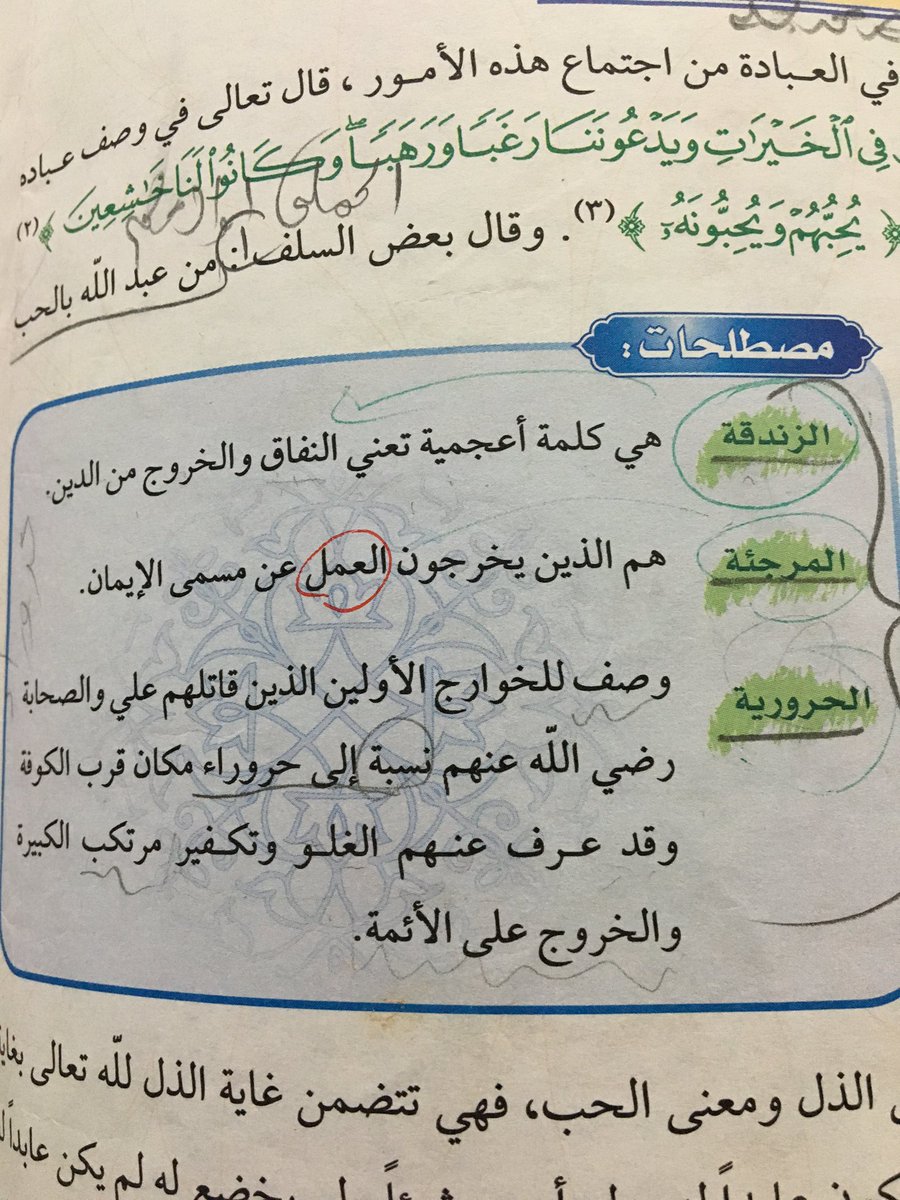 في العبادة من اجتماع هذه الأمور ، قال تعالى في وصف عباده
فِي ٱلْخَيْرَٰتِ وَيَدْعُونَنَا رَغَبًا وَرَهَبًا ۖ وَكَانُوا۟ لَنَا خَٰشِعِينَ ﴾ (٢)
﴿ يُحِبُّهُمْ وَيُحِبُّونَهُۥٓ ﴾ (٣). وقال بعض السلف: من عبد الله بالحب
مصطلحات :
الزندقة هي كلمة أعجمية تعني النفاق والخروج من الدين.
المرجئة هم الذين يخرجون العمل عن مسمى الإيمان.
الحرورية وصف للخوارج الأولين الذين قاتلهم علي والصحابة
رضي الله عنهم نسبة إلى حروراء مكان قرب الكوفة
وقد عرف عنهم الغلو وتكفير مرتكب الكبيرة
والخروج على الأئمة.
الذل ومعنى الحب، فهي تتضمن غاية الذل لله تعالى بغاية
يخضع له لم يكن عابداً